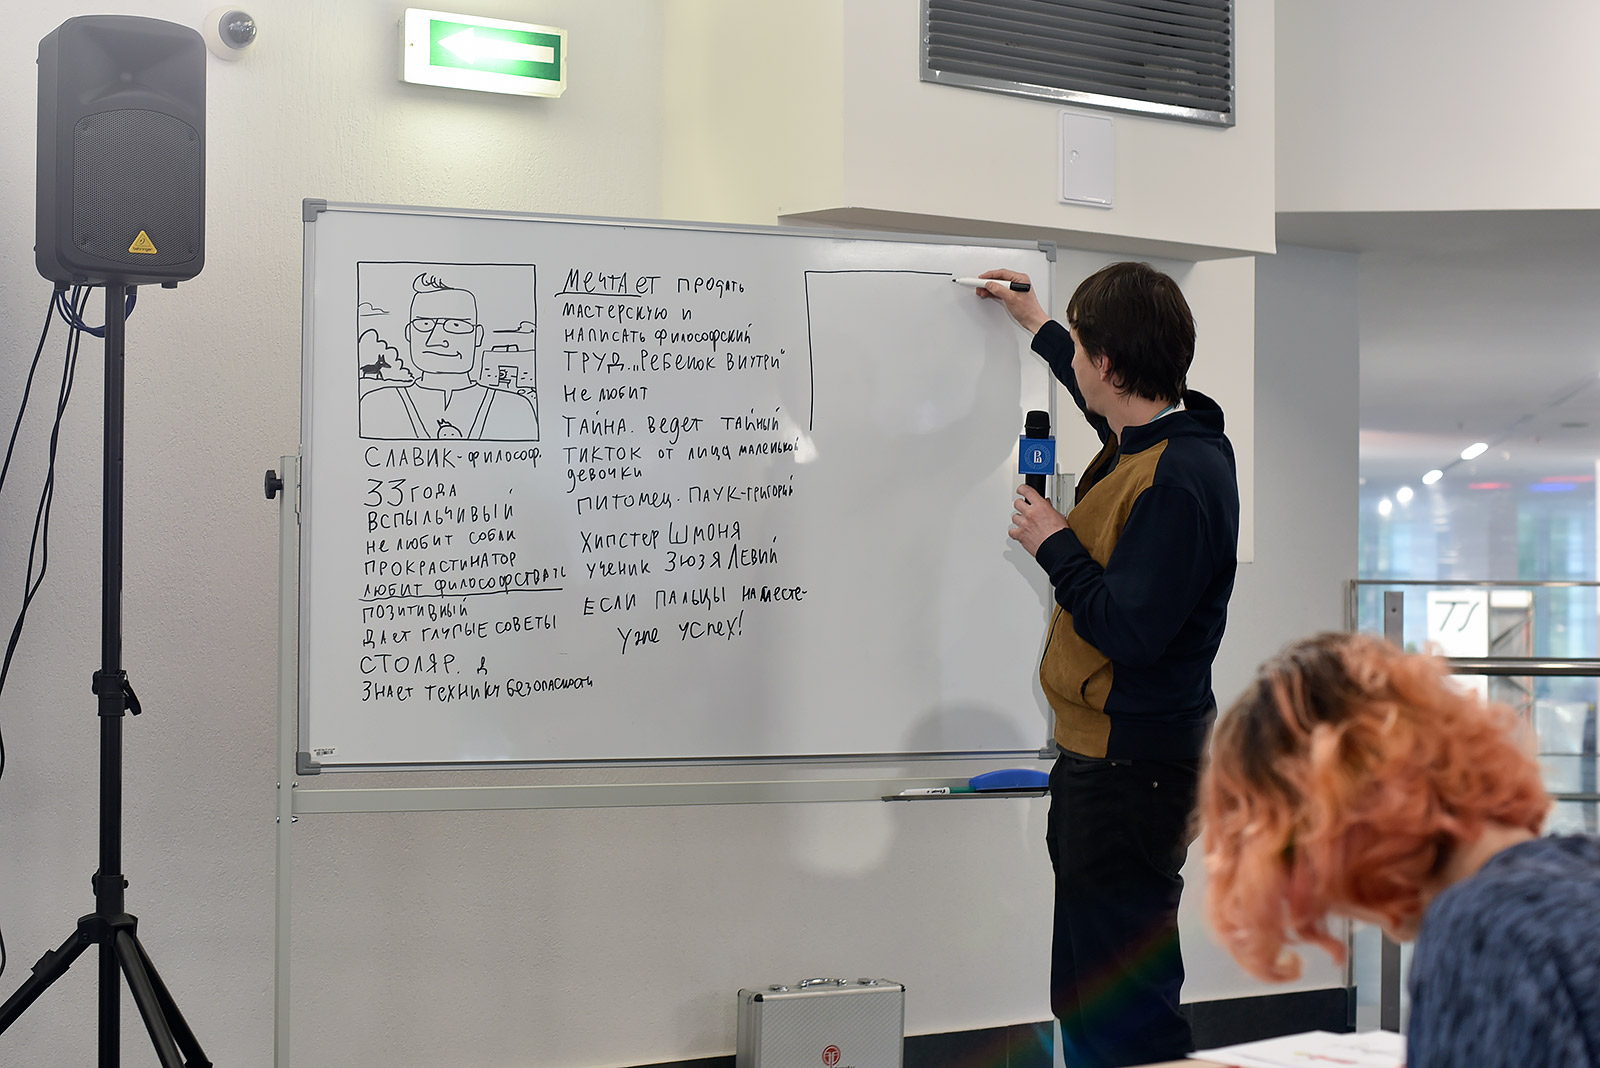 СЛАВИК-ФИЛОСОФ.
33 ГОДА
ВСПЫЛЬЧИВЫЙ
НЕ ЛЮБИТ СОБАК
ПРОКРАСТИНАТОР
ЛЮБИТ ФИЛОСОФСТВАТЬ
ПОЗИТИВНЫЙ
ДАЕТ ГЛУПЫЕ СОВЕТЫ
СТОЛЯР.
ЗНАЕТ ТЕХНИКУ БЕЗОПАСНОСТИ
МЕЧТАЕТ ПРОДАТЬ
МАСТЕРСКУЮ И
НАПИСАТЬ ФИЛОСОФСКИЙ
ТРУД „РЕБЕНОК ВНУТРИ“
НЕ ЛЮБИТ
ТАЙНА. ВЕДЕТ ТАЙНЫЙ
ТИКТОК ОТ ЛИЦА МАЛЕНЬКОЙ
ДЕВОЧКИ
ПИТОМЕЦ. ПАУК-ГРИГОРИЙ
ХИПСТЕР ШМОНЯ
УЧЕНИК ЗЮЗЯ ЛЕВИЙ
ЕСЛИ ПАЛЬЦЫ НА МЕСТЕ-
УЖЕ УСПЕХ!
behringer
TS